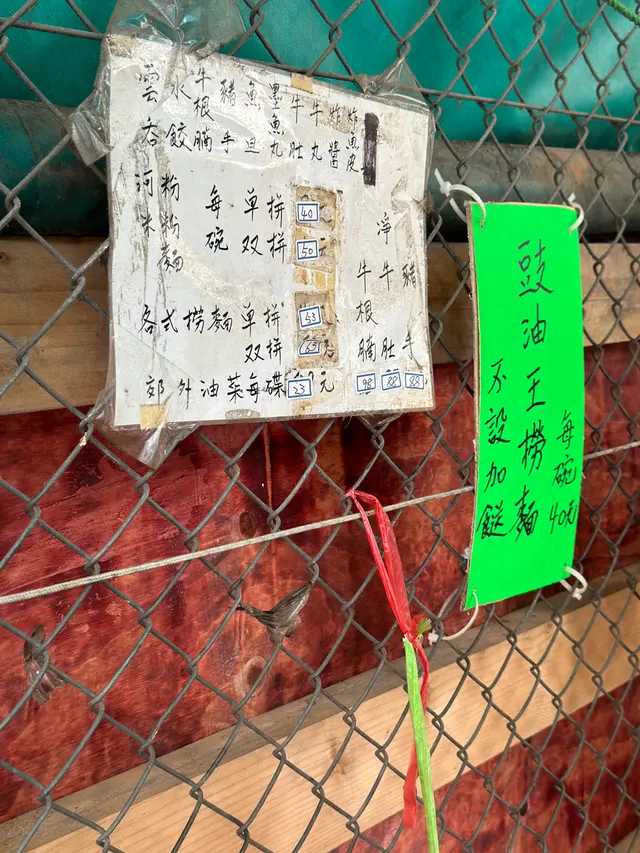 雲吞
水餃
牛根腩
豬手
魚旦
墨魚丸
牛肚
牛丸
炸醬
炸魚皮
河粉
米粉
麵
每碗
單拼 40
双拼 50元
各式撈麵 單拼 53
双拼 63元
郊外油菜每碟 23元
淨
牛根腩 98
牛肚 88
豬手 88
豉油王撈麵
每碗40元
不設加餸